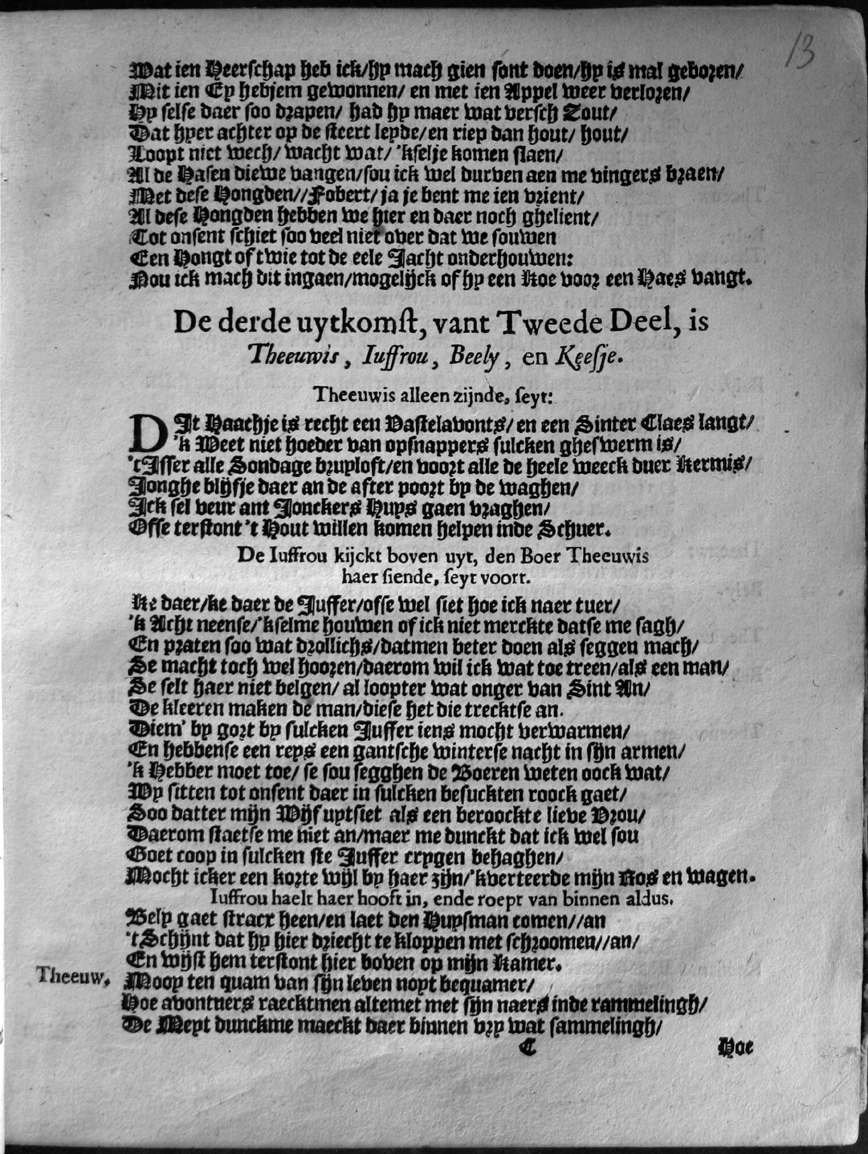 13
Wat ien Heerschap heb ick/hy mach gien sont doen/hy is mal geboren/
Mit ien Ey hebjem gewonnen/ en met ien Appel weer verloren/
Hy selse daer soo drapen/ had hy maer wat versch Zout/
Dat hyer achter op de steert leyde/en riep dan hout/ hout/
Loopt niet wech/ wacht wat/ 'kselje komen slaen/
Al de Hasen diewe vangen/sou ick wel durven aen me vingers braen/
Met dese Hongden//Fobert/ ja je bent me ien vrient/
Al dese Hongden hebben we hier en daer noch ghelient/
Tot onsent schiet soo veel niet over dat we souwen
Een Hongt of twie tot de eele Jacht onderhouwen:
Nou ick mach dit ingaen/mogelijck of hy een Koe voor een Haes vangt.
De derde uytkomst, vant Tweede Deel, is
Theeuwis, Iuffrou, Beely, en Keesje.
Theeuwis alleen zijnde, seyt:
DIt Haachje is recht een Vastelavonts/ en een Sinter Claes langt/
'k Weet niet hoeder van opsnappers sulcken gheswerm is/
't Isser alle Sondage bruyloft/en voort alle de heele weeck duer Kermis/
Jonghe blijfje daer an de after poort by de waghen/
Ick sel veur ant Jonckers Huys gaen vraghen/
Ofse terstont 't Hout willen komen helpen inde Schuer.
De Iuffrou kijckt boven uyt, den Boer Theeuwis
haer siende, seyt voort.
Ke daer/ke daer de Juffer/ofse wel siet hoe ick naer tuer/
'k Acht neense/'kselme houwen of ick niet merckte datse me sagh/
En praten soo wat drollichs/datmen beter doen als seggen mach/
Se macht toch wel hooren/daerom wil ick wat toe treen/als een man/
Se selt haer niet belgen/ al loopter wat onger van Sint An/
De kleeren maken de man/diese het die trecktse an.
Diem' by gort by sulcken Juffer iens mocht verwarmen/
En hebbense een reys een gantsche winterse nacht in sijn armen/
'k Hebber moet toe/ se sou segghen de Boeren weten oock wat/
Wy sitten tot onsent daer in sulcken besuckten roock gaet/
Soo datter mijn Wijf uytsiet als een beroockte lieve Vrou/
Daerom staetse me niet an/maer me dunckt dat ick wel sou
Goet coop in sulcken ste Juffer crygen behaghen/
Mocht icker een korte wijl by haer zijn/'kverteerde mijn Ros en wagen.
Iuffrou haelt haer hooft in, ende roept van binnen aldus.
Bely gaet stracx heen/en laet den Huysman comen//an
't Schijnt dat hy hier driecht te kloppen met schroomen//an/
En wijst hem terstont hier boven op mijn Kamer.
Theeuw. Moop ten quam van sijn leven noyt bequamer/
Hoe avontuers raecktmen altemet met sijn naers inde rammelingh/
De Meyt dunckme maeckt daer binnen vry wat sammelingh/
C Hoe